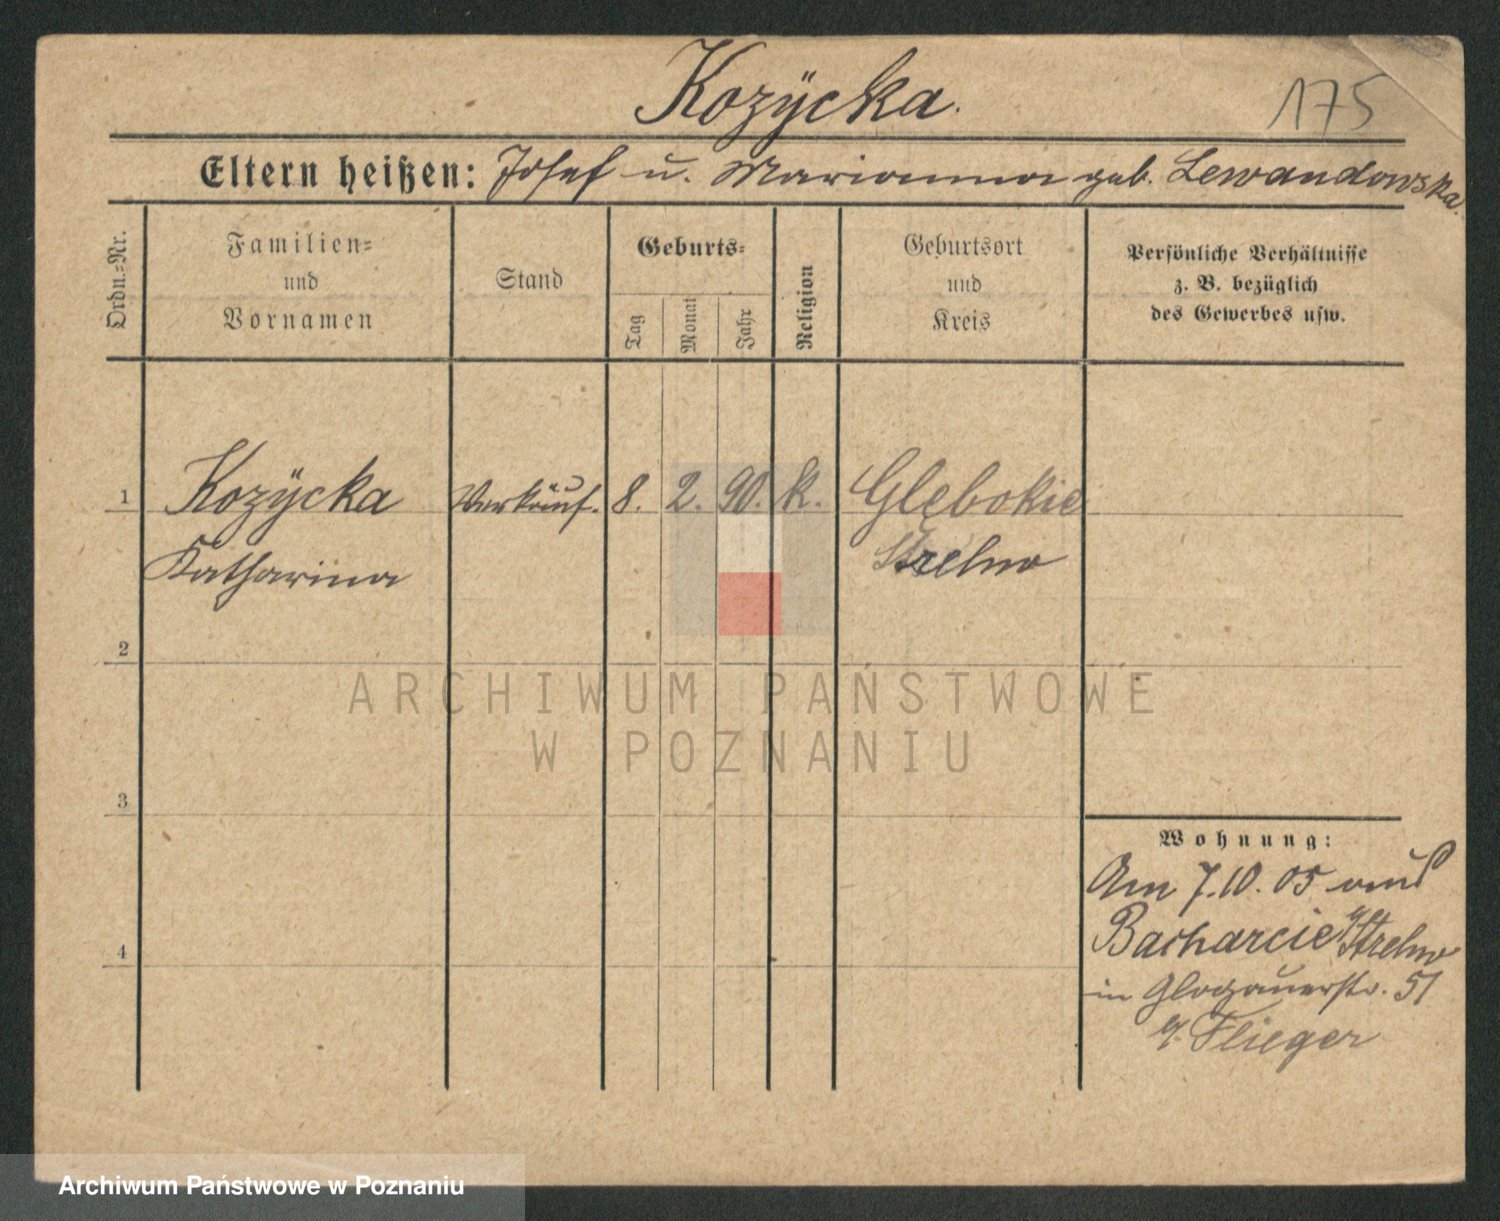 Kozÿcka.
175
Eltern heißen: Josef u. Marianna geb. Lewandowska.
Ordn.=Nr.
Familien=
und
Vornamen
Stand
Geburts=
Tag
Monat
Jahr
Religion
Geburtsort
und
Kreis
Persönliche Verhältnisse
z. B. bezüglich
des Gewerbes usw.
1
Kozÿcka Verkäuf. 8. 2. 90. k. Glębokie
Katharina Strelno
2
ARCHIWUM PAŃSTWOWE
W POZNANIU
3
Wohnung:
Am 7.10.05 aus
Bacharcie Strelno
4
in Glogauerstr. 51
Flieger
Archiwum Państwowe w Poznaniu